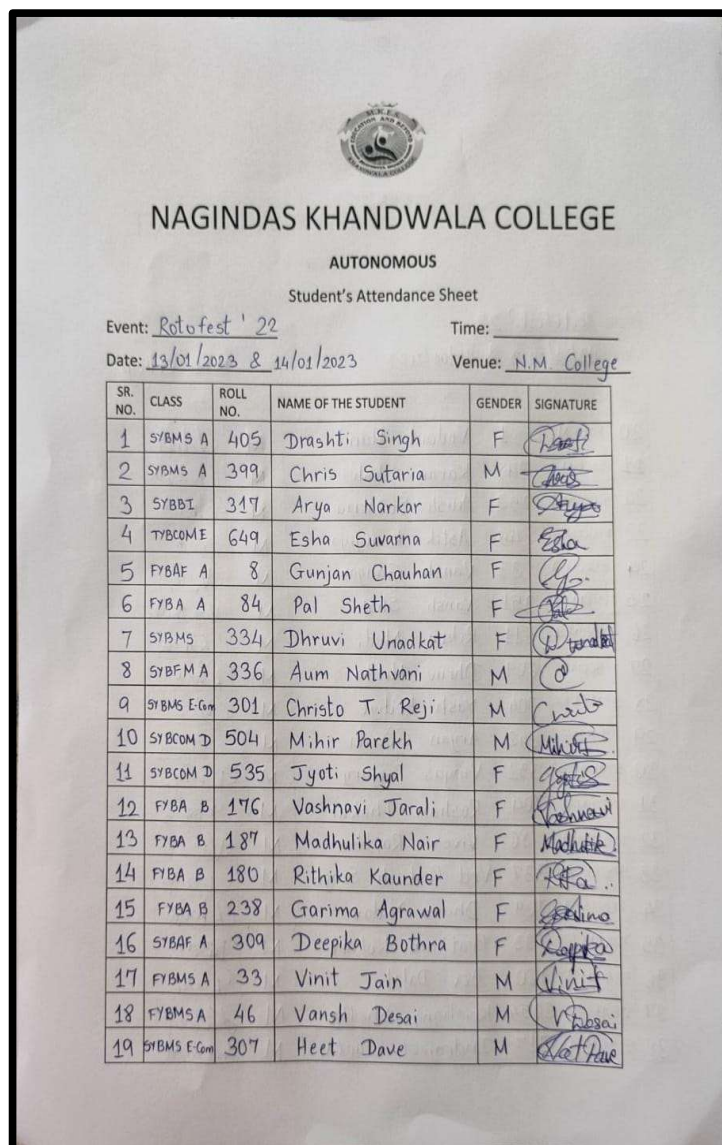 M.K.E.S
EDUCATION AND BEYOND
KHANDWALA COLLEGE
NAGINDAS KHANDWALA COLLEGE
AUTONOMOUS
Student's Attendance Sheet
Event: Rotofest ' 22 Time:
Date: 13/01/2023 & 14/01/2023 Venue: N.M. College
SR. NO. CLASS ROLL NO. NAME OF THE STUDENT GENDER SIGNATURE
1 SYBMS A 405 Drashti Singh F
2 SYBMS A 399 Chris Sutaria M Chris
3 SYBBI 317 Arya Narkar F Arya
4 TYBCOM E 649 Esha Suvarna F Esha
5 FYBAF A 8 Gunjan Chauhan F
6 FYBA A 84 Pal Sheth F
7 SYBMS 334 Dhruvi Unadkat F D Unadkat
8 SYBFM A 336 Aum Nathvani M
9 SYBMS E-Com 301 Christo T. Reji M
10 SYBCOM D 504 Mihir Parekh M
11 SYBCOM D 535 Jyoti Shyal F
12 FYBA B 176 Vashnavi Jarali F Vashnavi
13 FYBA B 187 Madhulika Nair F
14 FYBA B 180 Rithika Kaunder F
15 FYBA B 238 Garima Agrawal F
16 SYBAF A 309 Deepika Bothra F Deepika
17 FYBMS A 33 Vinit Jain M Vinit
18 FYBMS A 46 Vansh Desai M V Desai
19 SYBMS E-Com 307 Heet Dave M Heet Dave